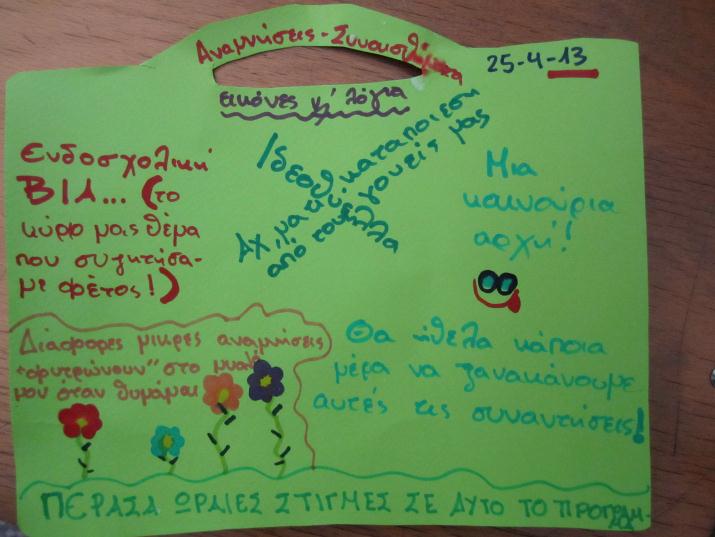 Αναμνήσεις - Συναισθήματα
25-4-13
εικόνες κ' λόγια
Ενδοσχολική
ΒΙΑ... (το
κύριο μας θέμα
που συζητήσα-
με φέτος!)
Αχ, ματιί καταπίεση
από τους γονείς μας
Μια
καινούρια
αρχή!
Διάφορες μικρες αναμνήσεις
"φυτρώνουν" στο μυαλό
μου όταν θυμάμαι
Θα ήθελα κάποια
μέρα να ξανακάνουμε
αυτές τις συναντήσεις!
ΠΕΡΑΣΑ ΩΡΑΙΕΣ ΣΤΙΓΜΕΣ ΣΕ ΑΥΤΟ ΤΟ ΠΡΟΓΡΑΜ-
ΜΑ